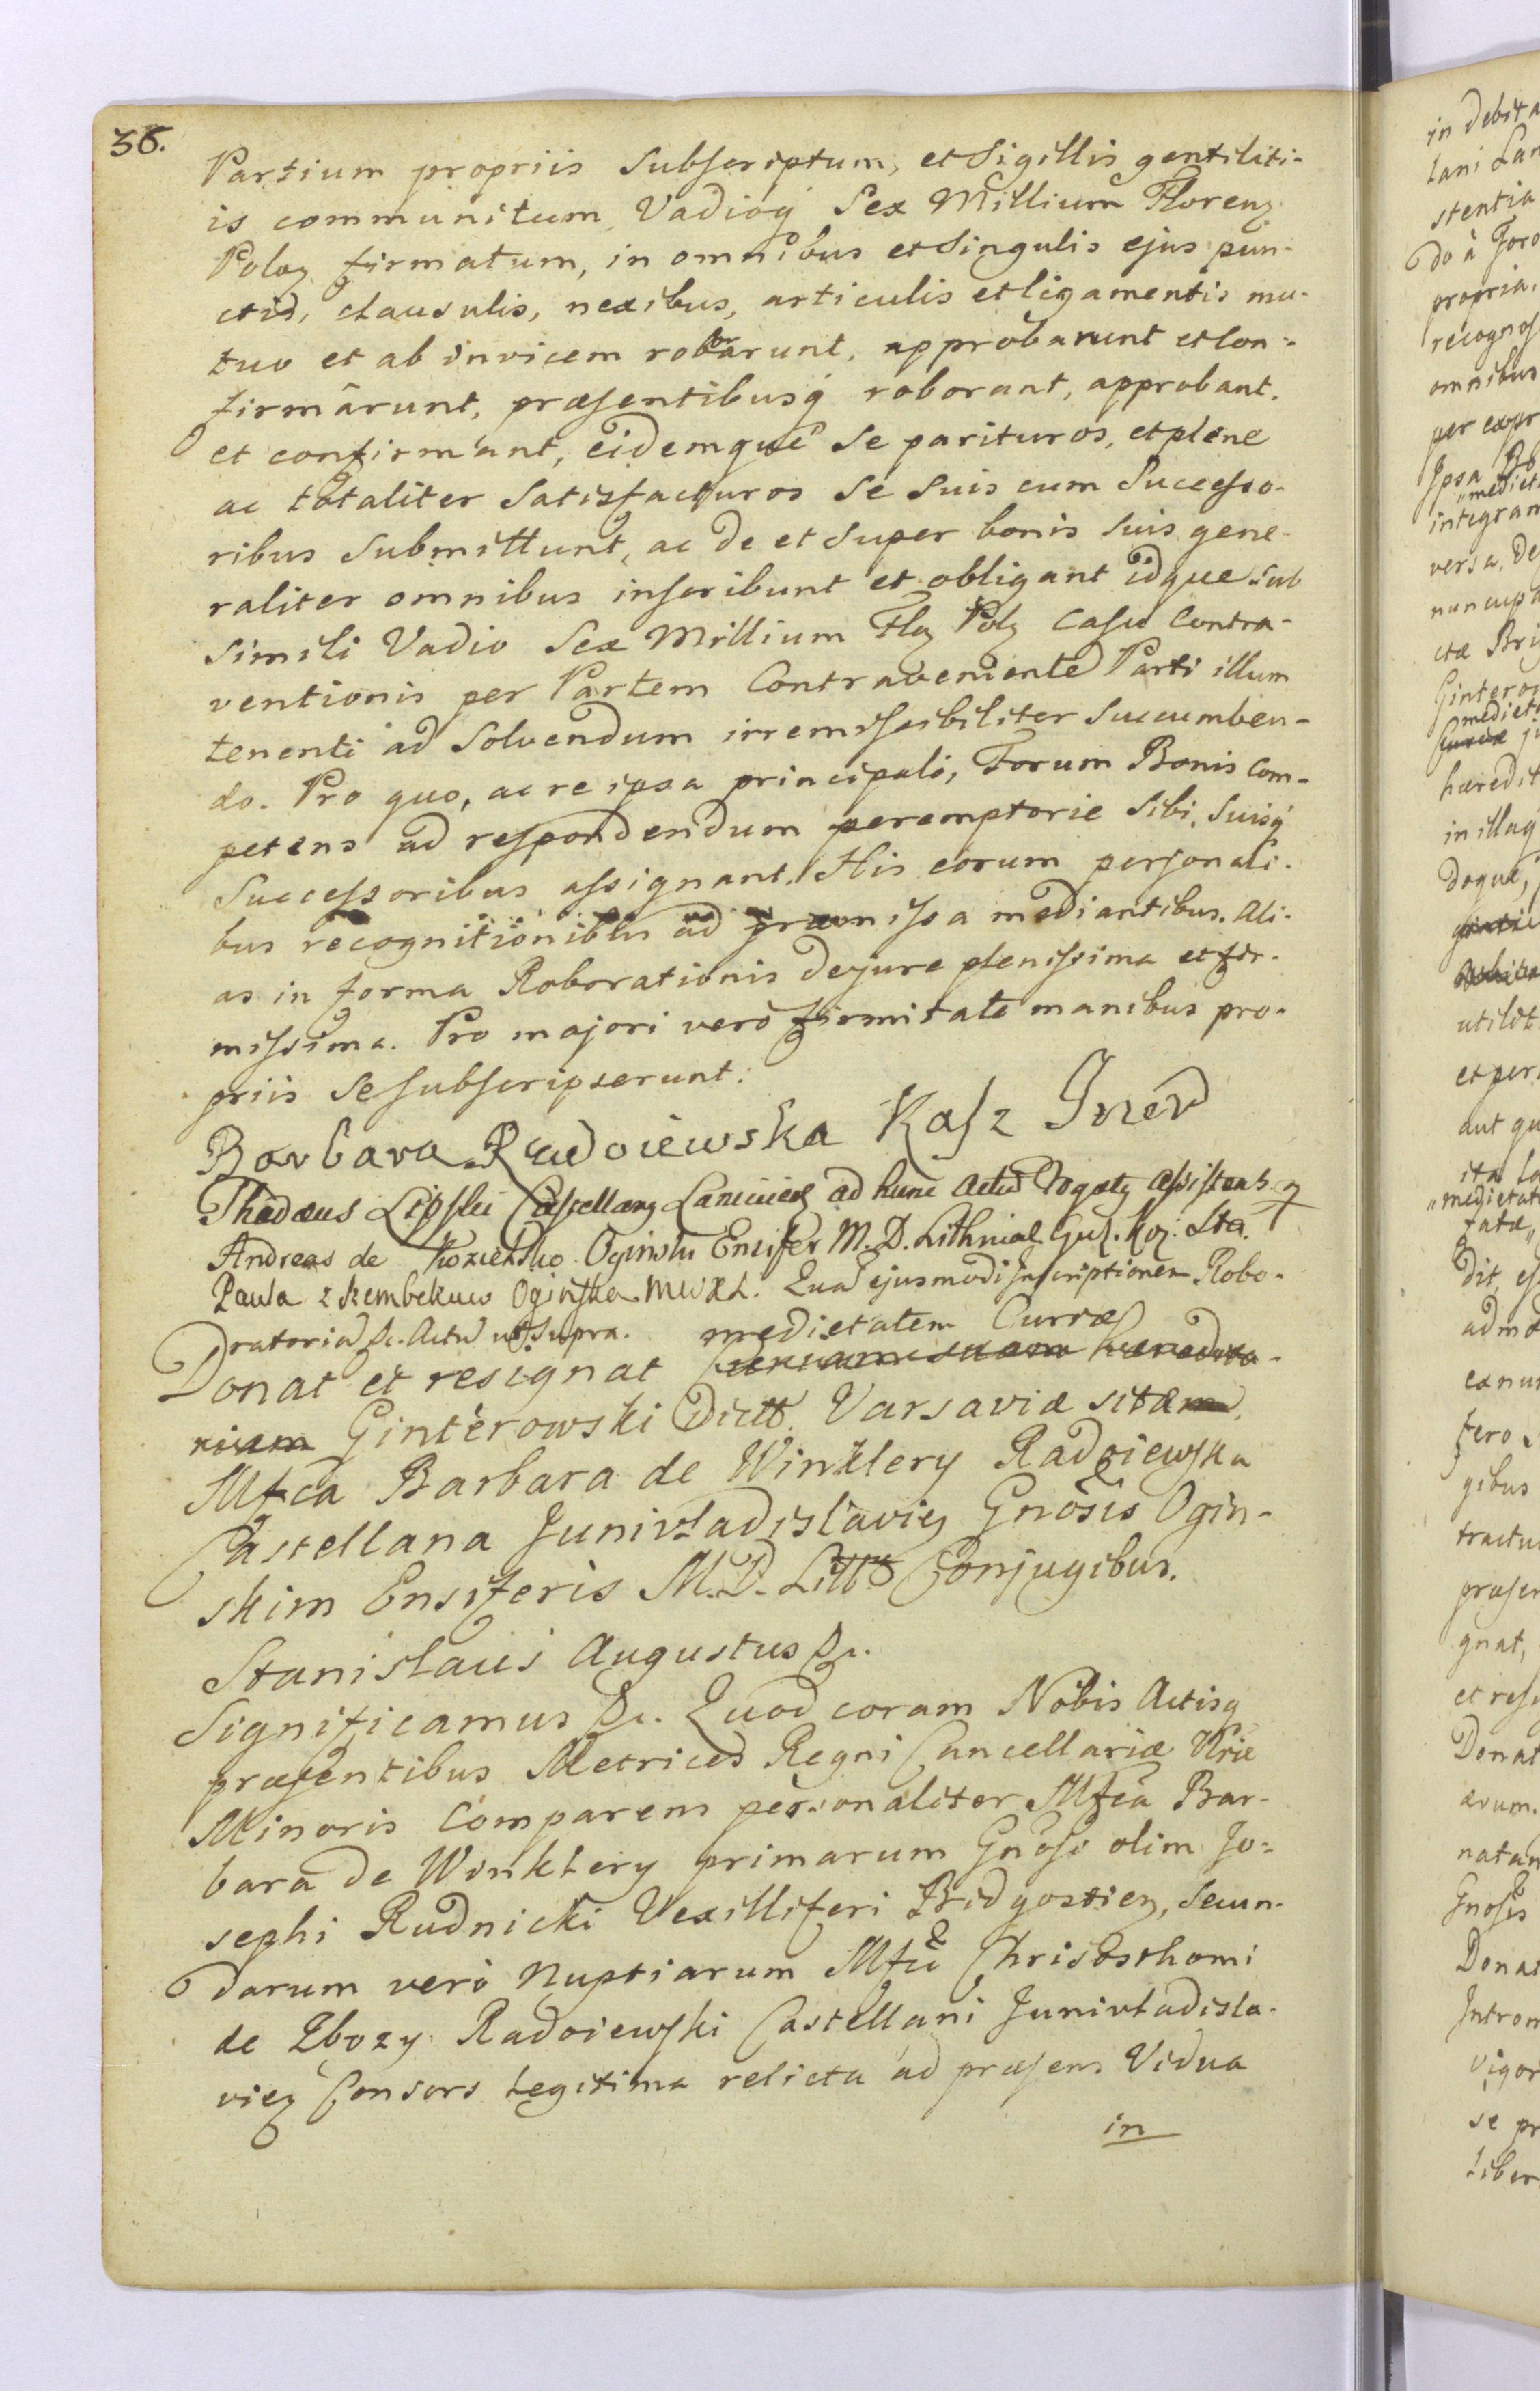 36.
Partium propriis Subscriptum, et Sigillis gentiliti-
is communitum, Vadioq Sex Millium Floreng
Polog firmatum, in omnibus et Singulis ejus pun-
ctis, clausulis, nexibus, articulis et ligamentis mu-
tuo et ab invicem roborarunt, approbarunt et Con-
firmârunt, præsentibusq roborant, approbant,
et confirmant, eidemque Se parituros, et plene
ac totaliter Satisfacturos Se Suis cum Successo-
ribus Submittunt, ac de et Super bonis Suis gene-
raliter omnibus inscribunt et obligant idque Sub
Simili Vadio Sex Millium Flog Polg Casu Contra-
ventionis per Partem Contraveniente Parti illum
tenenti ad Solvendum irremissibiliter Succumben-
do. Pro quo, ac re ipsa principali, Forum Bonis Com-
petens ad respondendum peremptorie Sibi, Suisq
Successoribus assignant. His eorum personali-
bus recognitionibus ad præmissa mediantibus. Ali-
as in forma Roborationis de jure plenissima et fir-
missima. Pro majori verò firmitate manibus pro-
priis Se subscripserunt.
Barbara Radoiewska Kasz Inow
Thadæus Lipski Castellang Lancicieg ad hunc Actu rogatg assistens
Andreas de Kozielsko Oginski Ensifer M. D. Lithniæ Guz. Koz. Sta.
Paula z Szembekuw Oginska MWXL. Qua ejusmodi Inscriptionem Robo-
ratoria &c. Actu ut Supra.
medietatem Curiæ
Donat et resignat
Ginterowski Dictt. Varsaviæ sitæ
Mfca Barbara de Winklery Radoiewska
Castellana Junivladislavieg Gnosis Ogin-
skim Ensiferis M. D. Litt Conjugibus.
Stanislaus Augustus &c.
Significamus &c. Quod coram Nobis Actisq
præsentibus Metrices Regni Cancellariæ Nriæ
Minoris Comparens personaliter Mfca Bar-
bara de Winklery primarum Gnosi olim Jo-
sephi Rudnicki Vexilliferi Bidgostieg, Secun-
darum verò Nuptiarum Mfci Chrisosthomi
de Zbozy Radoiewski Castellani Junivladisla-
vieg Consors Legitima relicta ad præsens Vidua
in